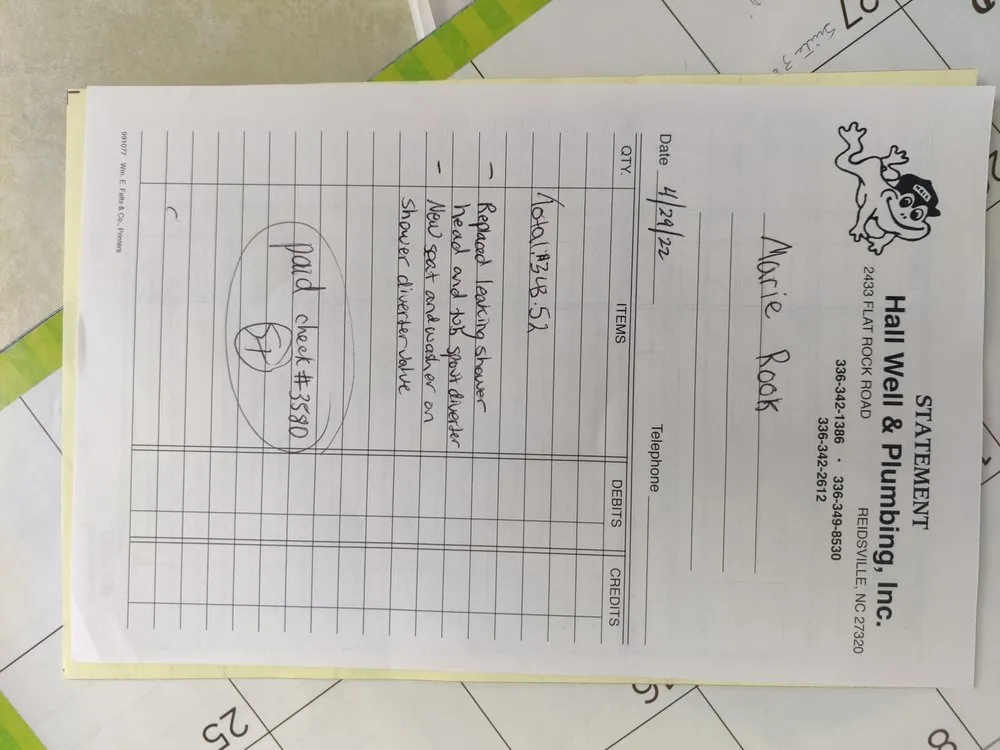 STATEMENT
Hall Well & Plumbing, Inc.
2433 FLAT ROCK ROAD REIDSVILLE, NC 27320
336-342-1386 • 336-349-8530
336-342-2612
Marie Rook
Date 4/29/22 Telephone
QTY. ITEMS DEBITS CREDITS
Total: $348.52
- Replaced leaking shower
head and tub spout diverter
- New seat and washer on
shower diverter valve
paid check # 3580
991077 Wm. E. Felts & Co., Printers
Suite
25